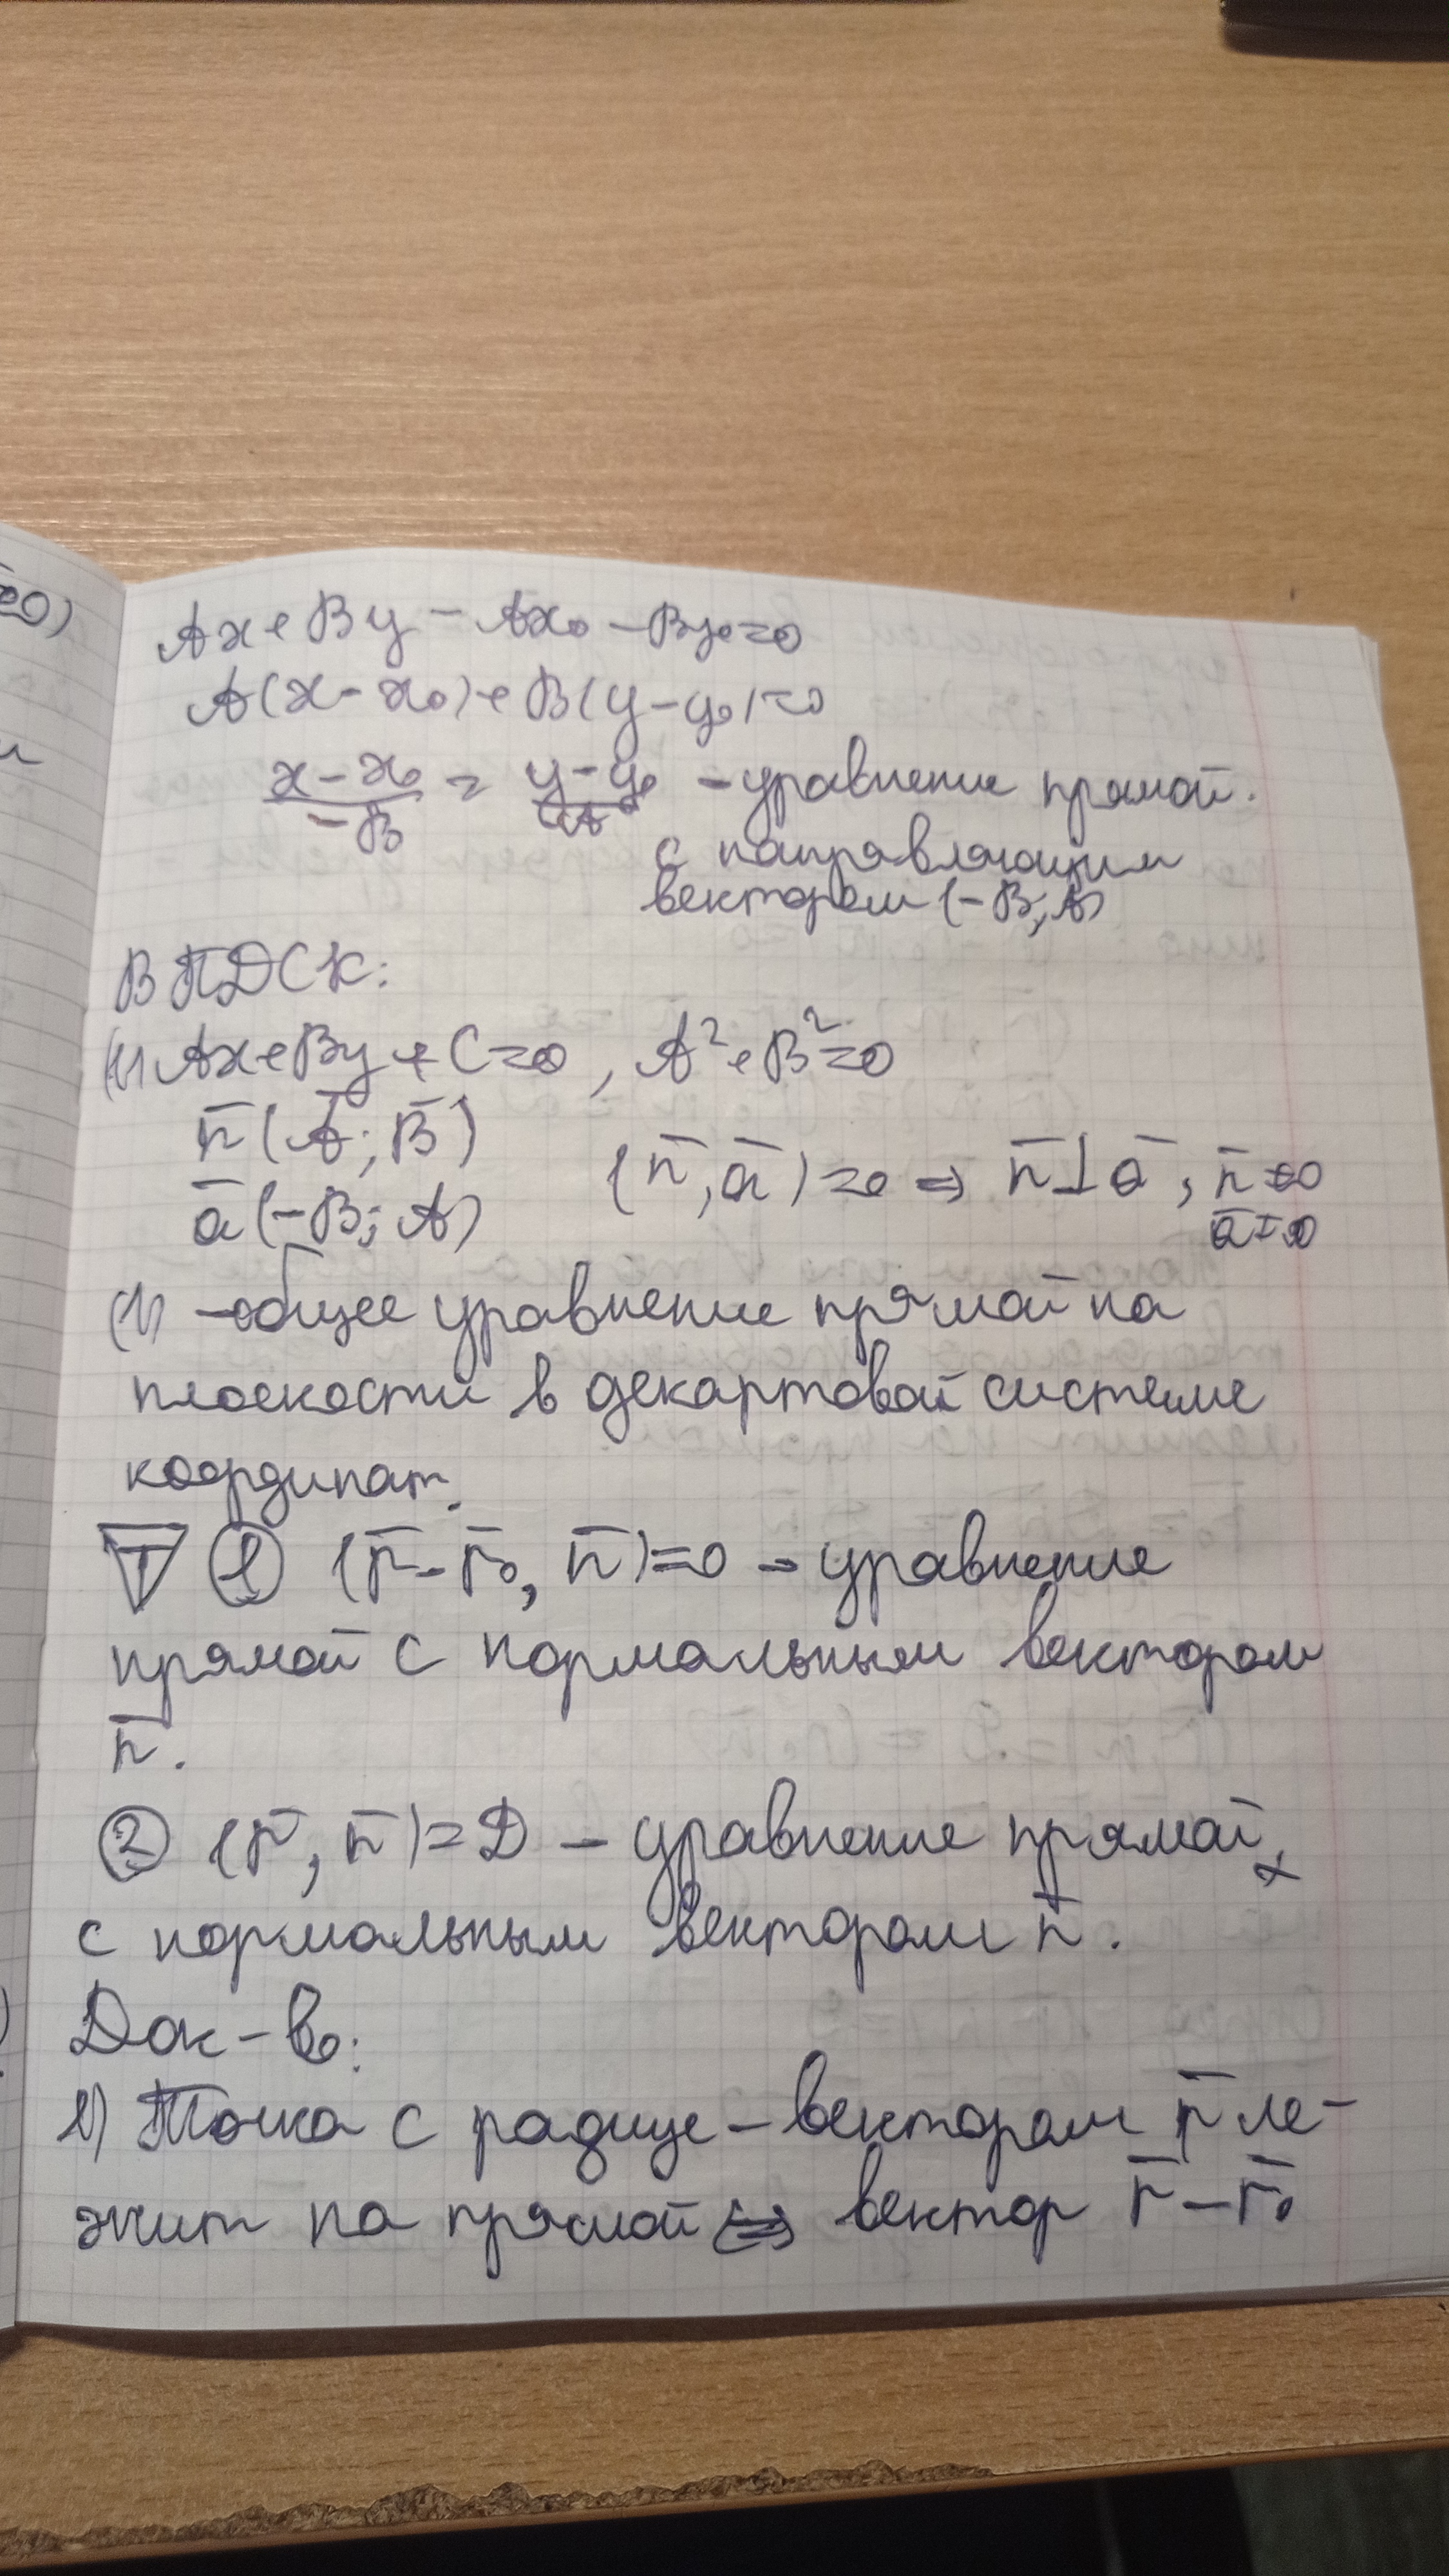 Ax+By-Ax₀-By₀=0
A(x-x₀)+B(y-y₀)=0
(x-x₀)/(-B) = (y-y₀)/A - уравнение прямой.
с направляющим
вектором (-B; A)
В ПДСК:
(1) Ax+By+C=0, A²+B²=0
n̄(A; B)
ā(-B; A) (n̄, ā)=0 ⇒ n̄⊥ā, n̄≠0
ā≠0
(1) - общее уравнение прямой на
плоскости в декартовой системе
координат.
Т ① (r̄-r̄₀, n̄)=0 - уравнение
прямой с нормальным вектором
n̄.
② (r̄, n̄)=D - уравнение прямой
с нормальным вектором n̄.
Док-во:
1) Точка с радиус-вектором r̄ ле-
жит на прямой ⇔ вектор r̄-r̄₀